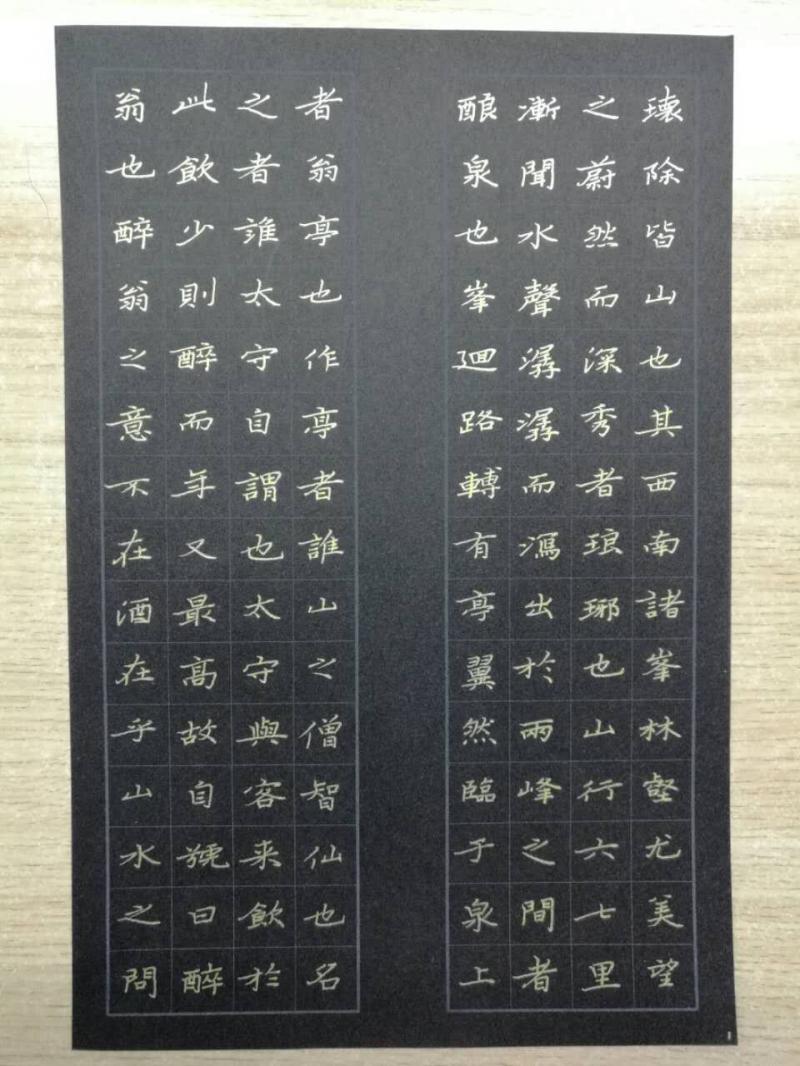 環除皆山也其西南諸峯林壑尤美望
之蔚然而深秀者琅琊也山行六七里
漸聞水聲潺潺而瀉出於兩峰之間者
酿泉也峯廻路轉有亭翼然臨于泉上
者翁亭也作亭者誰山之僧智仙也名
之者誰太守自謂也太守與客来飲於
此飲少則醉而年又最高故自號曰醉
翁也醉翁之意不在酒在乎山水之問